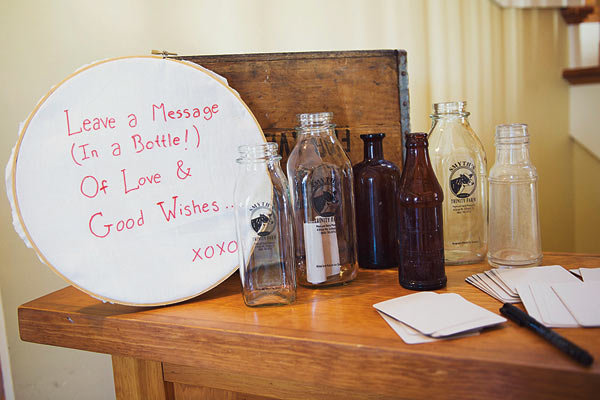 Leave a Message
(In a Bottle!)
Of Love &
Good Wishes...
xoxo
SMYTH'S
TRINITY FARM
SMYTH'S
TRINITY FARM
SMYTH'S
TRINITY FARM